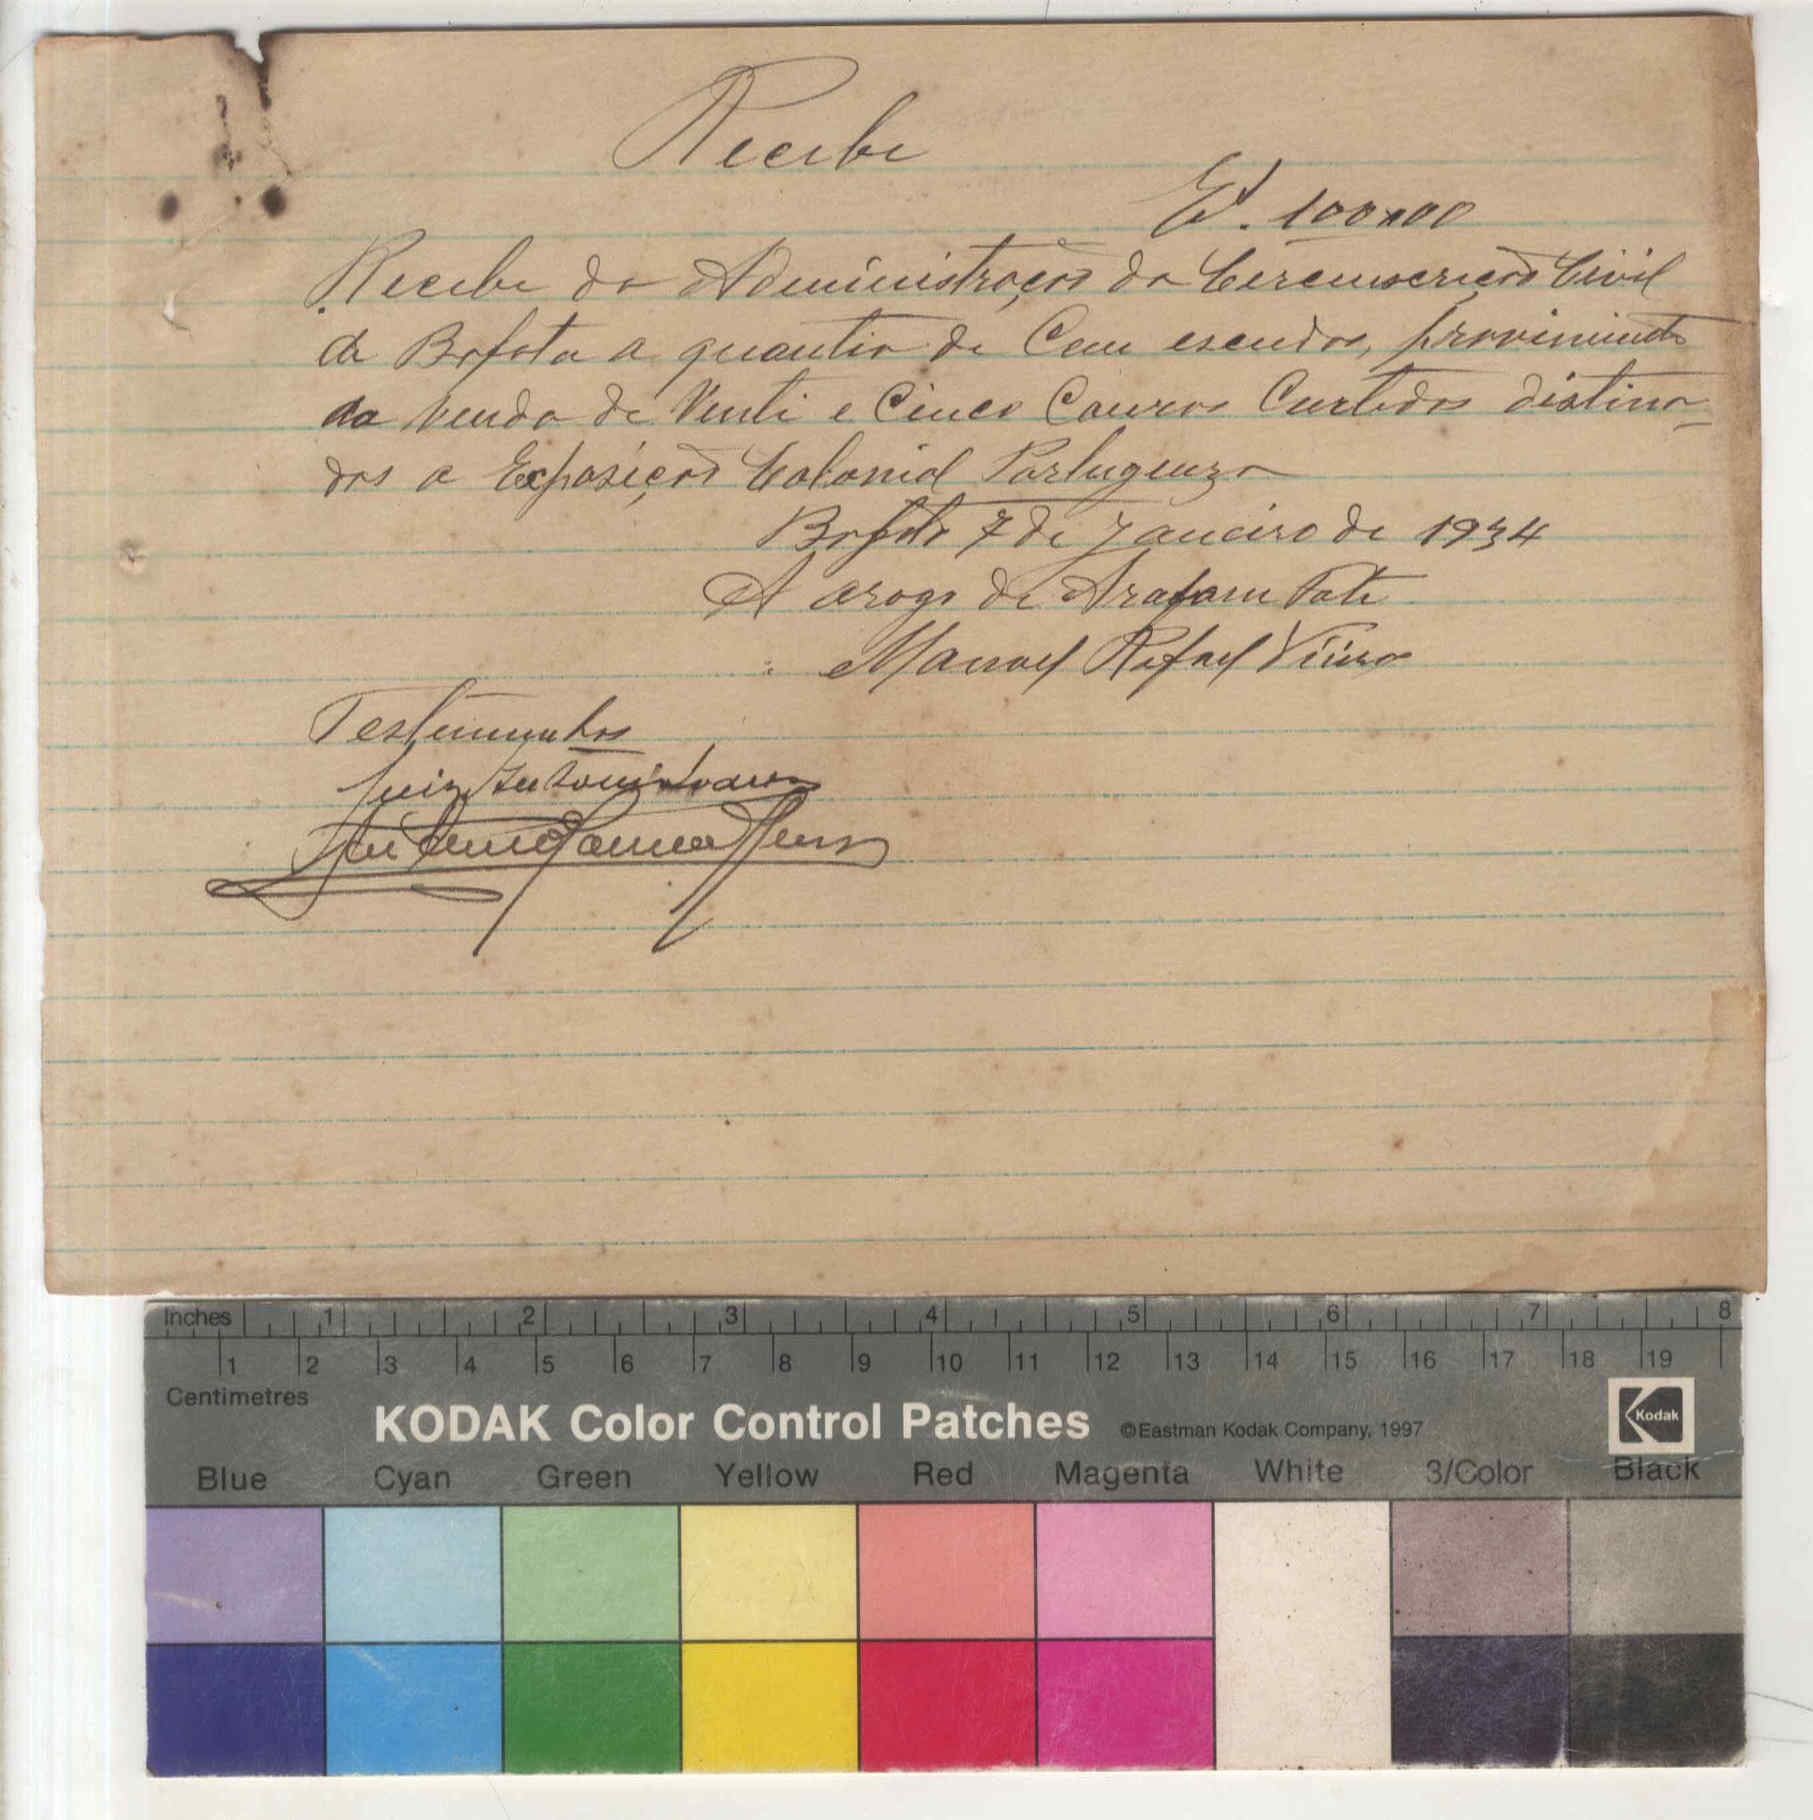 Recibo
Recibi da Administração da Circumscrição Civil
de Bafata a quantia de Cem escudos, provimimte
da venda de Vinti e Cinco Couros Curtidos distina-
dos a Exposição Colonial Portugueza
Bafata 7 de Janeiro de 1934
A arogo de Arafam Pati
Manoel Rafael
Testimunhas
Luiz Antonio Soares
Inches 1 2 3 4 5 6 7 8
1 2 3 4 5 6 7 8 9 10 11 12 13 14 15 16 17 18 19
Centimetres
KODAK Color Control Patches ©Eastman Kodak Company, 1997 Kodak
Blue Cyan Green Yellow Red Magenta White 3/Color Black